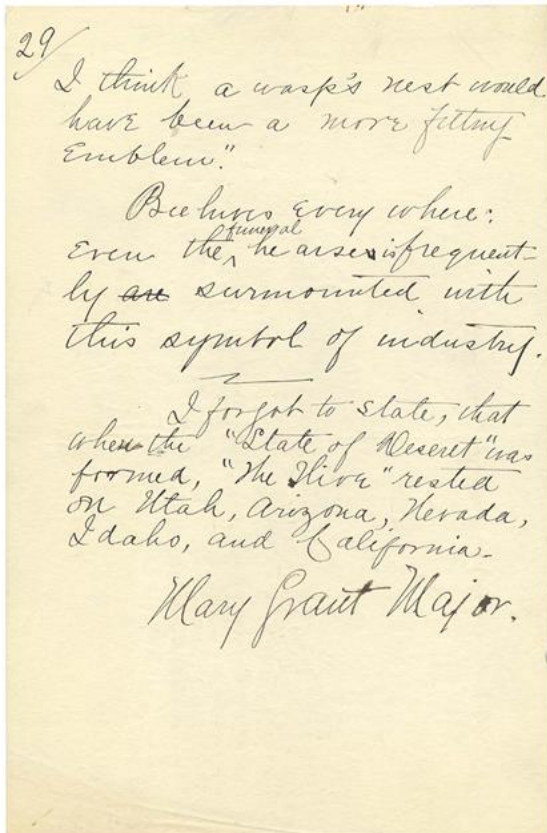 29/
I think a wasp's nest would
have been a more fitting
Emblem."
Bee hives every where:
even the funeral hearse is frequent-
ly are surmounted with
this symbol of industry.
I forgot to state, that
when the "State of Deseret" was
formed, "The Hive" rested
on Utah, Arizona, Nevada,
Idaho, and California.
Mary Grant Major.